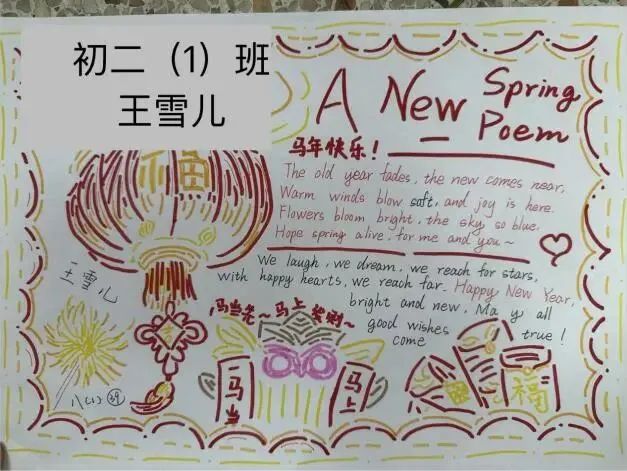 初二（1）班
王雪儿
A New Spring
Poem
马年快乐！
The old year fades, the new comes near,
Warm winds blow soft, and joy is here.
Flowers bloom bright, the sky so blue,
Hope spring alive, for me and you~
We laugh, we dream, we reach for stars,
with happy hearts, we reach far. Happy New Year,
bright and new, May all
good wishes
come true!
福
王雪儿
马当先~马上发财~
马当
马上
福
八(1) 39